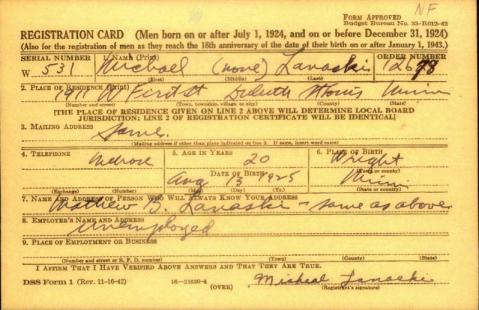 NF
FORM APPROVED
Budget Bureau No. 33-R012-42
REGISTRATION CARD (Men born on or after July 1, 1924, and on or before December 31, 1924)
(Also for the registration of men as they reach the 18th anniversary of the date of their birth on or after January 1, 1943.)
SERIAL NUMBER 1. NAME (Print) ORDER NUMBER
W 531 Michael (none) Lanaski
(First) (Middle) (Last)
2. PLACE OF RESIDENCE (Print)
W First St Duluth Minn
(Number and street) (Town, township, village, or city) (County) (State)
[THE PLACE OF RESIDENCE GIVEN ON LINE 2 ABOVE WILL DETERMINE LOCAL BOARD
JURISDICTION; LINE 2 OF REGISTRATION CERTIFICATE WILL BE IDENTICAL]
3. MAILING ADDRESS
Same.
[Mailing address if other than place indicated on line 2. If same, insert word same]
4. TELEPHONE 5. AGE IN YEARS 6. PLACE OF BIRTH
Melrose 20 Wright
DATE OF BIRTH (Town or county)
Aug 1925 Minn
(Exchange) (Number) (Mo.) (Day) (Yr.) (State or country)
7. NAME AND ADDRESS OF PERSON WHO WILL ALWAYS KNOW YOUR ADDRESS
Lanaski - same as above
8. EMPLOYER'S NAME AND ADDRESS
Unemployed
9. PLACE OF EMPLOYMENT OR BUSINESS
(Number and street or R. F. D. number) (Town) (County) (State)
I AFFIRM THAT I HAVE VERIFIED ABOVE ANSWERS AND THAT THEY ARE TRUE.
DSS Form 1 (Rev. 11-16-42) (OVER) Micheal Lanaski
(Registrant's signature)